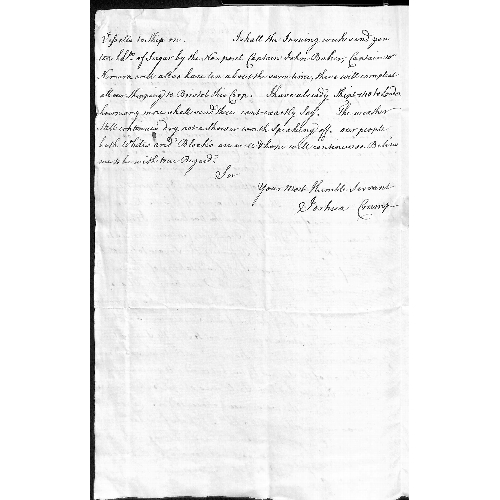 Vessells to Ship on. I shall the Insuing week send you
ten hhds. of Sugar by the Newport Captain John Baker, Captain
and about the same time, there will compleat
all our Shipping to Bristol this Crop. I have already Shipt 110 to London
how many more shall send there cant exactly Say. The weather
still continues dry, not a Shower worth Speaking off. our people
both Whites and Blacks are well & hope will continue so. Believe
me to be with true Regard
Sir
Your Most Humble Servant
Joshua Crump